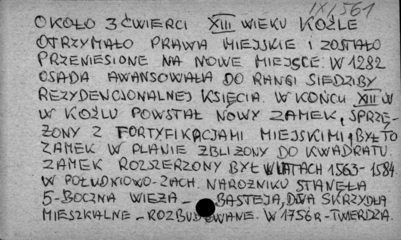 IX/561
OKOŁO 3 ĆWIERCI XIII WIEKU KOŹLE
OTRZYMAŁO PRAWA MIEJSKIE i ZOSTAŁO
PRZENIESIONE NA NOWE MIEJSCE. W 1282
OSADA AWANSOWAŁA DO RANGI SIEDZIBY
REZYDENCJONALNEJ KSIĘCIA. W KOŃCU XIII W
W KOŹLU POWSTAŁ NOWY ZAMEK, SPRZĘ-
ŻONY Z FORTYFIKACJAMI MIEJSKIMI, BYŁ TO
ZAMEK W PLANIE ZBLIŻONY DO KWADRATU.
ZAMEK ROZSZERZONY BYŁ W LATACH 1563-1584.
W POŁUDNIOWO-ZACH. NAROŻNIKU STANĘŁA
5-BOCZNA WIEŻA - BASTEJA, DWA SKRZYDŁA
MIESZKALNE - ROZBUDOWANE. W 1756r.-TWIERDZA.